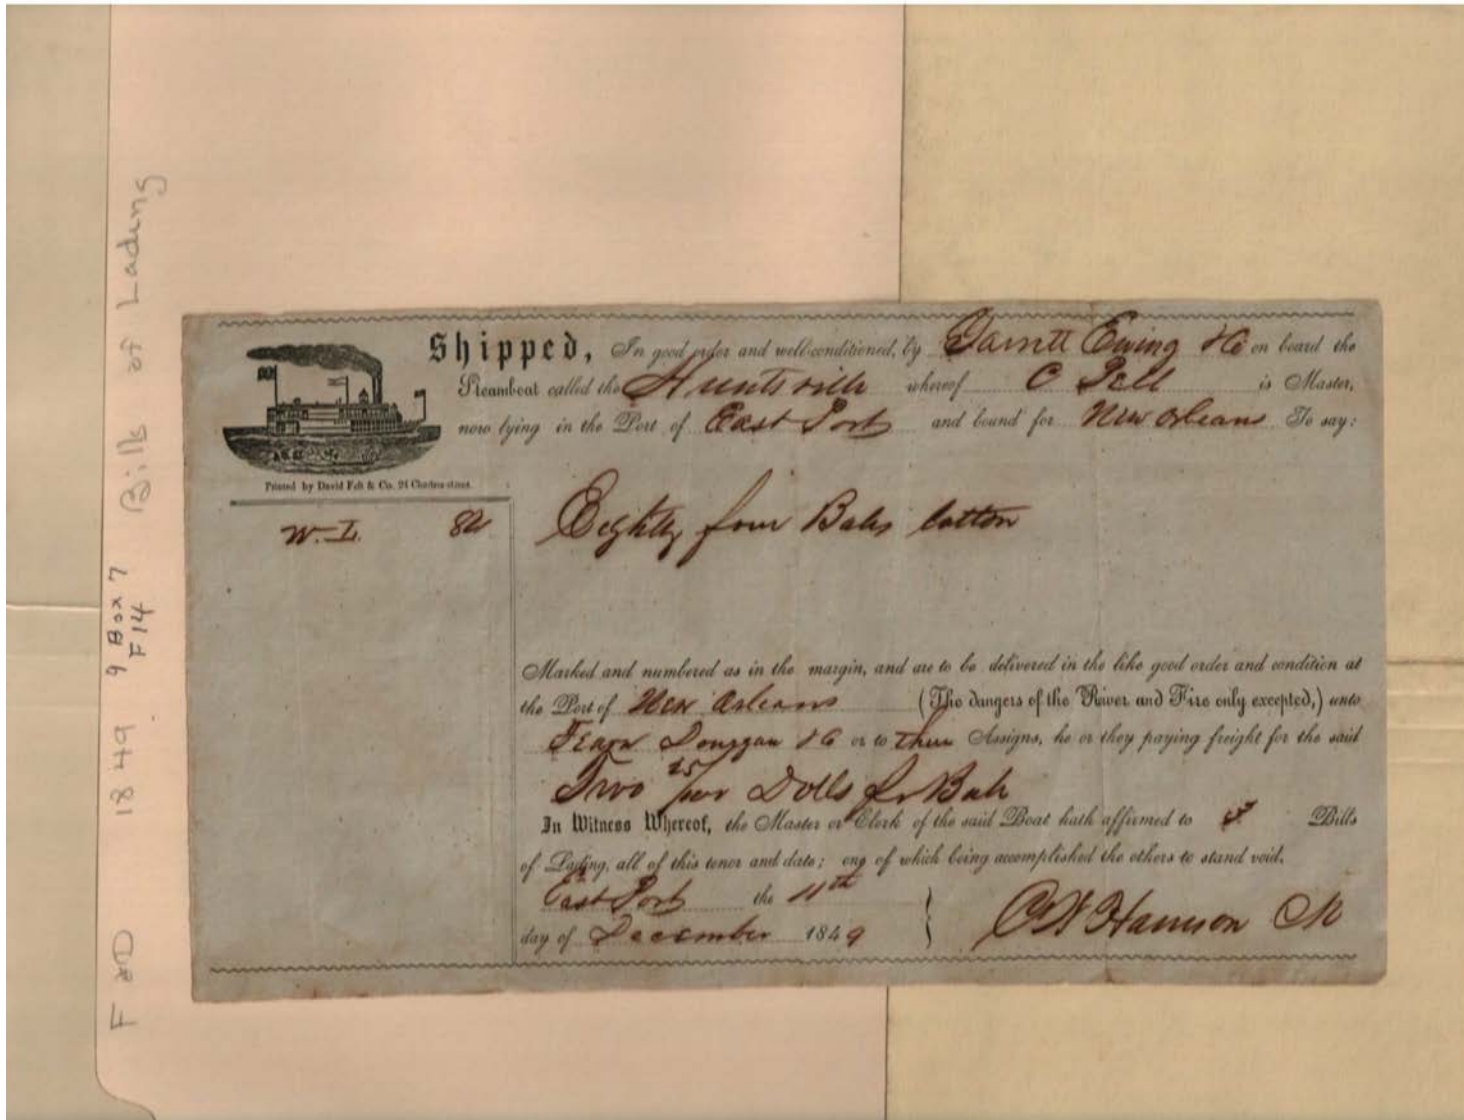 F & D 1849 9 Box 7 Bills of Lading
F 14
Shipped, In good order and well-conditioned, by Garrett Ewing & Co on board the
Steamboat called the Huntsville whereof C Pell is Master,
now lying in the Port of East Port and bound for New Orleans To say:
Printed by David Felt & Co. 24 Chartres-street.
W. L. 84 Eighty four Bales Cotton
Marked and numbered as in the margin, and are to be delivered in the like good order and condition at
the Port of New Orleans (The dangers of the River and Fire only excepted,) unto
Fearn Donegan & Co or to their Assigns, he or they paying freight for the said
Two 25/100 Dolls pr Bale
In Witness Whereof, the Master or Clerk of the said Boat hath affirmed to Bills
of Lading, all of this tenor and date; one of which being accomplished the others to stand void.
East Port the 11th
day of December 1849 Harrison